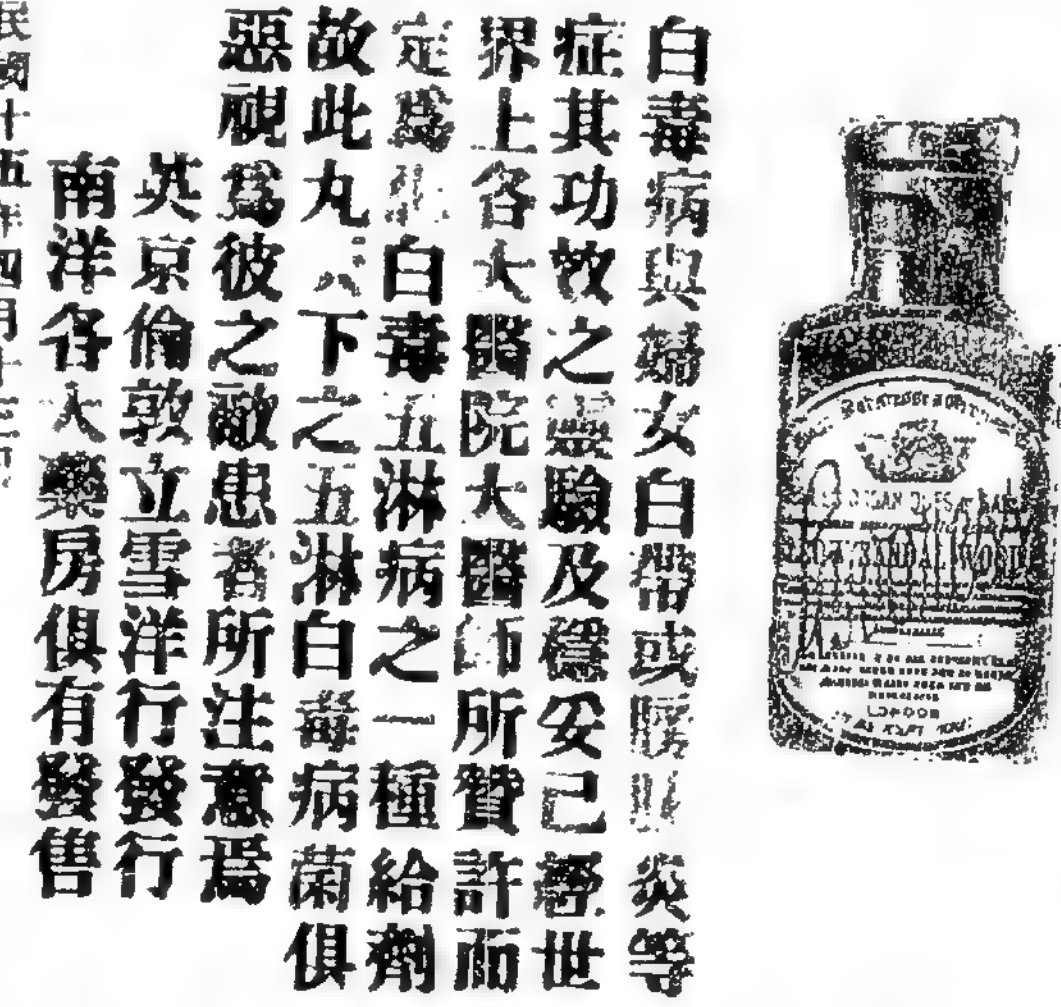 白毒病與婦女白帶或膀胱炎等
症其功效之靈驗及穩妥已經世
界上各大醫院大醫師所贊許而
定爲白毒五淋病之一種給劑
故此丸下之五淋白毒病菌俱
惡視爲彼之敵患者所注意焉
英京倫敦立雪洋行發行
南洋各大藥房俱有發售
民國十五年四月十
LONDON